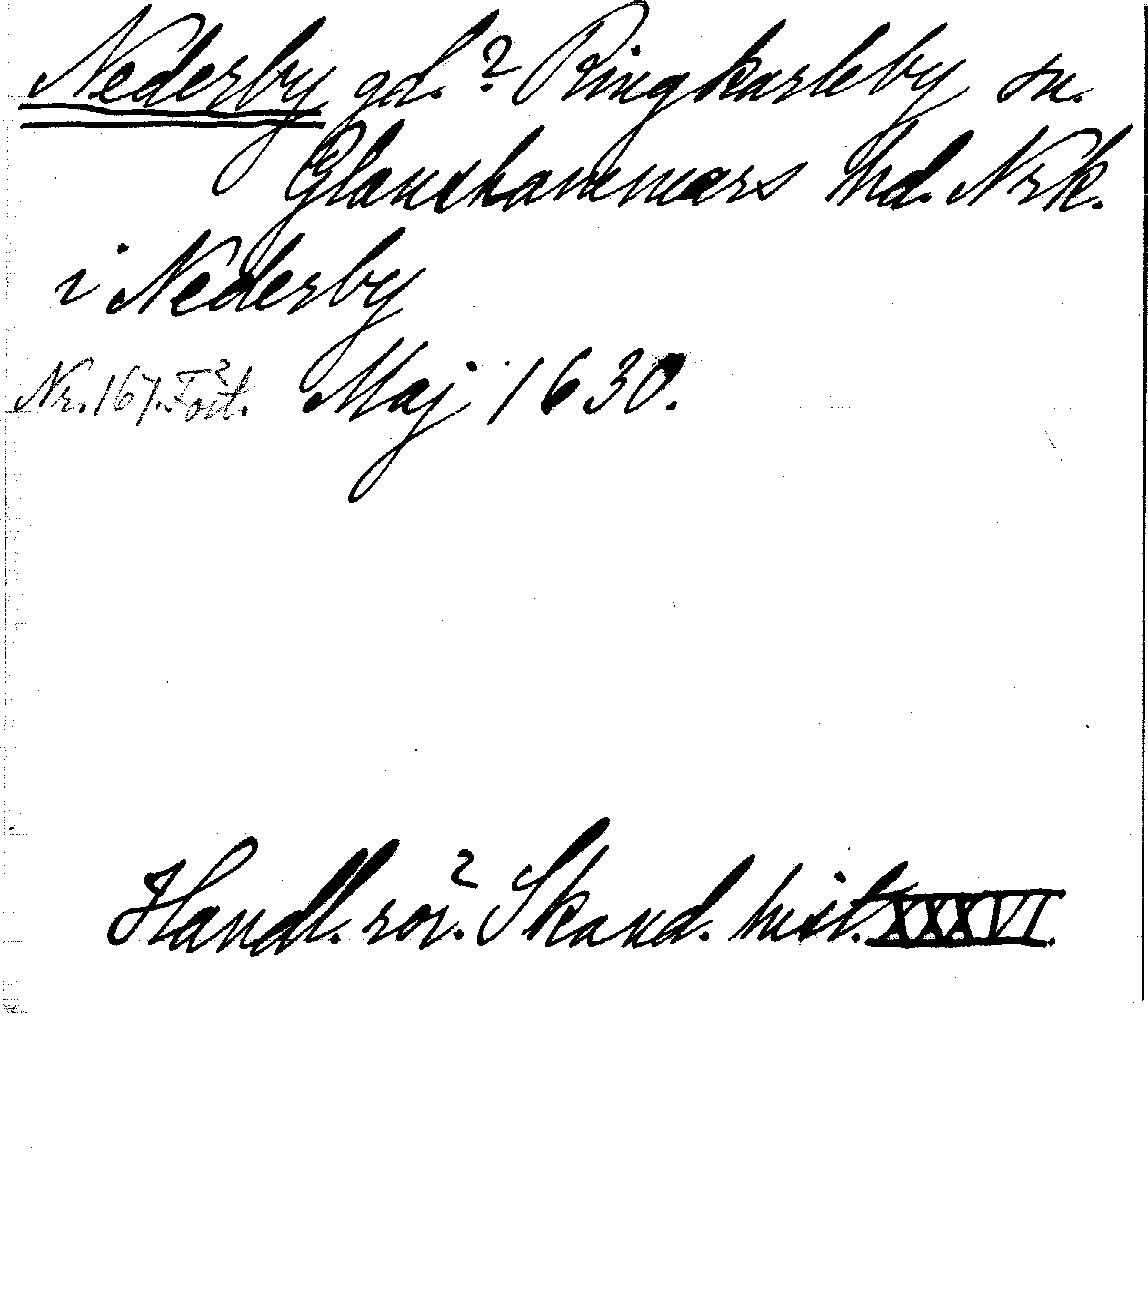 Nederby gd.? Ringkarleby sn.
Glanshammars hd. Nrk.
i Nederby
Nr. 167. Fört. Maj 1630.
Handl. rör. Skand. hist. XXXVI.